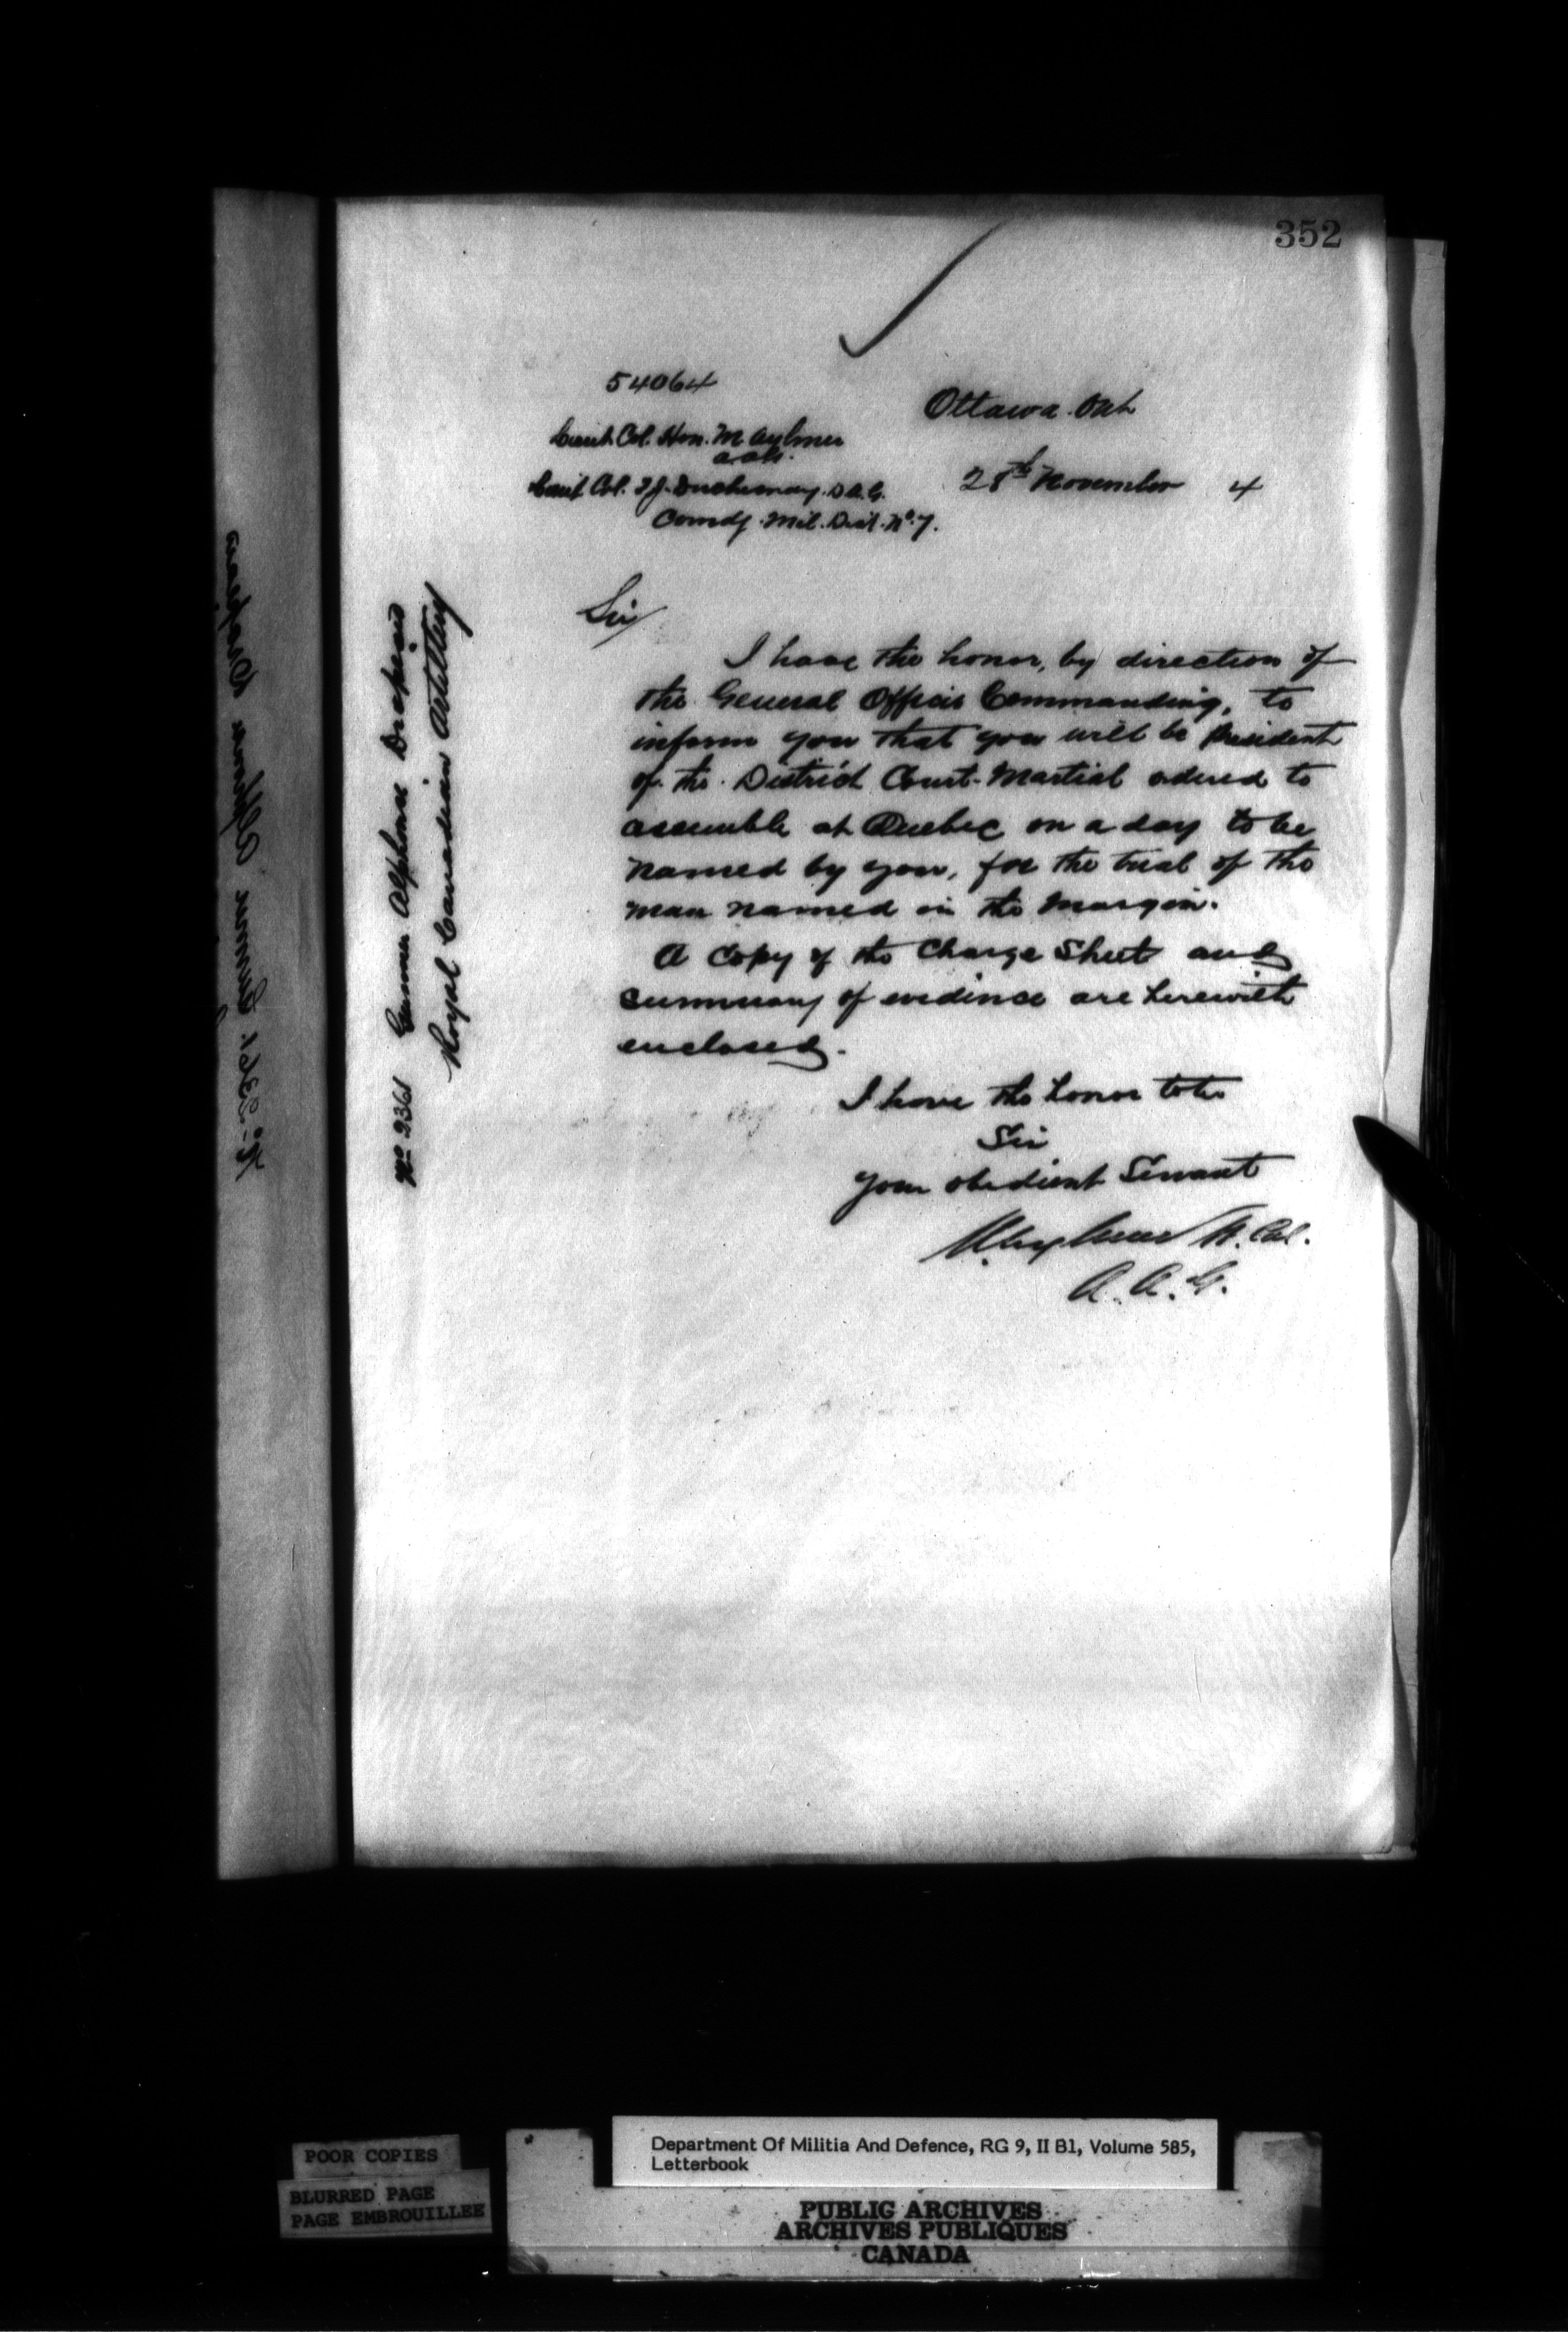 352
54064
Ottawa. Ont
Lieut Col. Hon. M Aylmer
A.A.G.
28th November 4
Lieut Col. T.J. Duchesnay. D.A.G.
Comdg. Mil. Dist. No. 7.
Sir
No 2361 Gunner Alphonse Drapeau
Royal Canadian Artillery
I have the honor, by direction of
the General Officer Commanding, to
inform you that you will be President
of the District Court-Martial ordered to
assemble at Quebec on a day to be
named by you, for the trial of the
man named in the margin.
A Copy of the Charge Sheet and
summary of evidence are herewith
enclosed.
I have the honor to be
Sir
your obedient Servant
MAylmer Lt. Col.
A.A.G.
POOR COPIES
BLURRED PAGE
PAGE EMBROUILLEE
Department Of Militia And Defence, RG 9, II B1, Volume 585,
Letterbook
PUBLIC ARCHIVES
ARCHIVES PUBLIQUES
CANADA